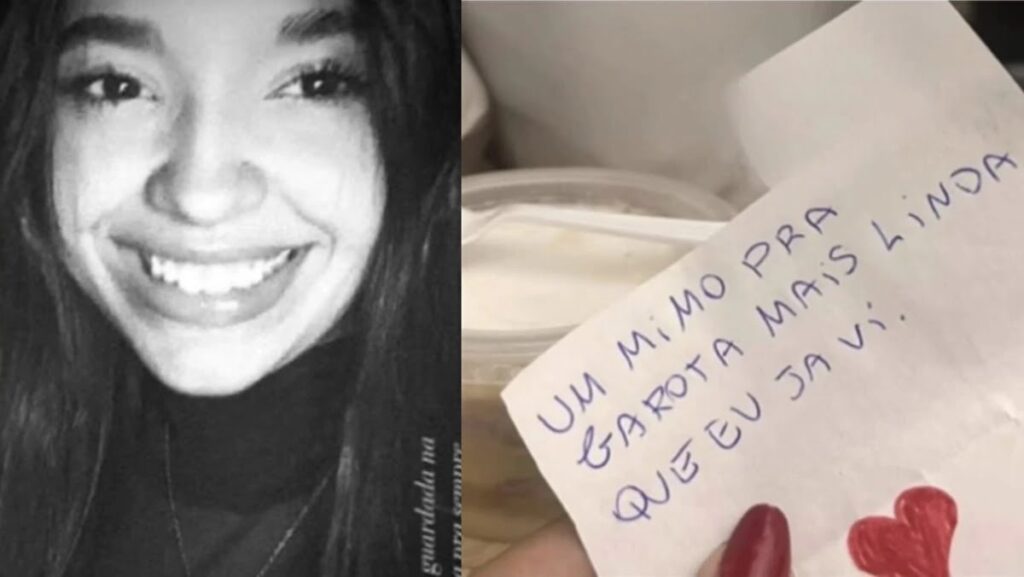 guardada na
pra sempre
UM MiMO PRA
GAROTA MAiS LiNDA
QUE EU JA Vi.